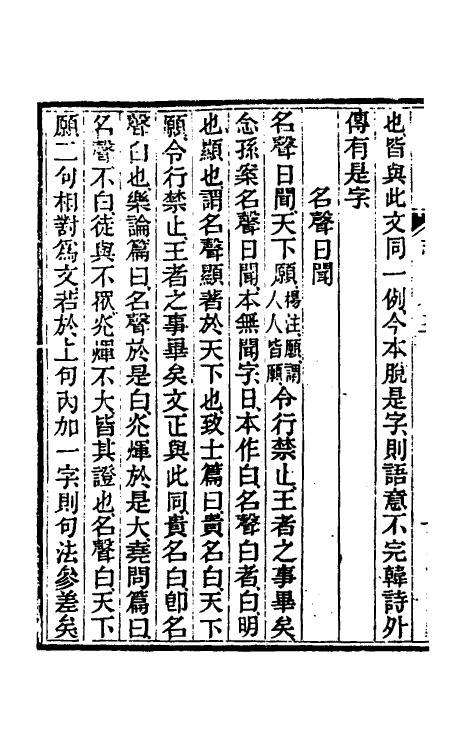 也皆與此文同一例今本脫是字則語意不完韓詩外
傳有是字
名聲日聞
名聲日聞天下願楊注願謂人人皆願令行禁止王者之事畢矣
念孫案名聲日聞本無聞字日本作白名聲白者白明
也顯也謂名聲顯著於天下也致士篇曰貴名白天下
願令行禁止王者之事畢矣文正與此同貴名白卽名
聲白也樂論篇曰名聲於是白炎煇於是大堯問篇曰
名聲不白徒與不眾炎煇不大皆其證也名聲白天下
願二句相對爲文若於上句內加一字則句法參差矣